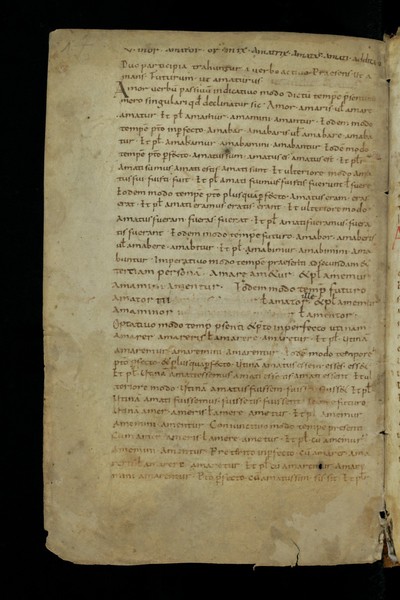 Duo participia trahuntur a verbo activo Praesens ut a
mans Futurum ut amaturus
Amor verbum passivum indicativo modo dictum tempore
mero singulari quod declinatur sic Amor amaris vel amare
amatur & pl amamur amamini amantur Eodem modo
tempore pto inpfecto Amabar amabaris vel amabare amaba
tur & pl amabamur amabamini amabantur Eodem modo
tempore pto pfecto Amatus sum amatus es amatus est & pl
amati sumus amati estis amati sunt & ulteriore modo ama
tus fui fuisti fuit & pl amati fuimus fuistis fuerunt l fuere
Eodem modo tempore pto plusquapfecto Amatus eram eras
erat & pl amati eramus eratis erant & ulteriore modo
Amatus fueram fueras fuerat & pl amati fueramus fuera
tis fuerant Eodem modo tempore futuro Amabor amaberis
vel amabere amabitur & pl amabimur amabimini ama
buntur Imperativo modo tempore praesenti ad secundam &
tertiam personam Amare am&ur & pl amemur
Amamini amentur Eodem modo temp futuro
Amator tu l amator ille & pl amemur
Amaminor l amentor
Optativo modo temp psenti & pto inperfecto utinam
Amarer amareris l amarere amaretur & pl utina
amaremur amaremini amarentur Eode modo tempore
pto pfecto & plusquapfecto Utina amatus essem esses esset
& pl Utina amati essemus amati essetis essent
teriore modo Utina amatus fuissem fuisses fuiss& & pl
Utina amati fuissemus fuissetis fuissent futuro
Utina amer ameris l amere ametur & pl amemur
amemini amentur Coniunctivo modo tempore praesenti
Cum amer ameris l amere ametur & pl cu amemur
amemini amentur Praeterito inpfecto cu amarer ama
reris l amarere amaretur & pl cu amaremur amare
mini amarentur Pto pfecto cu amatus sim sis sit & pl